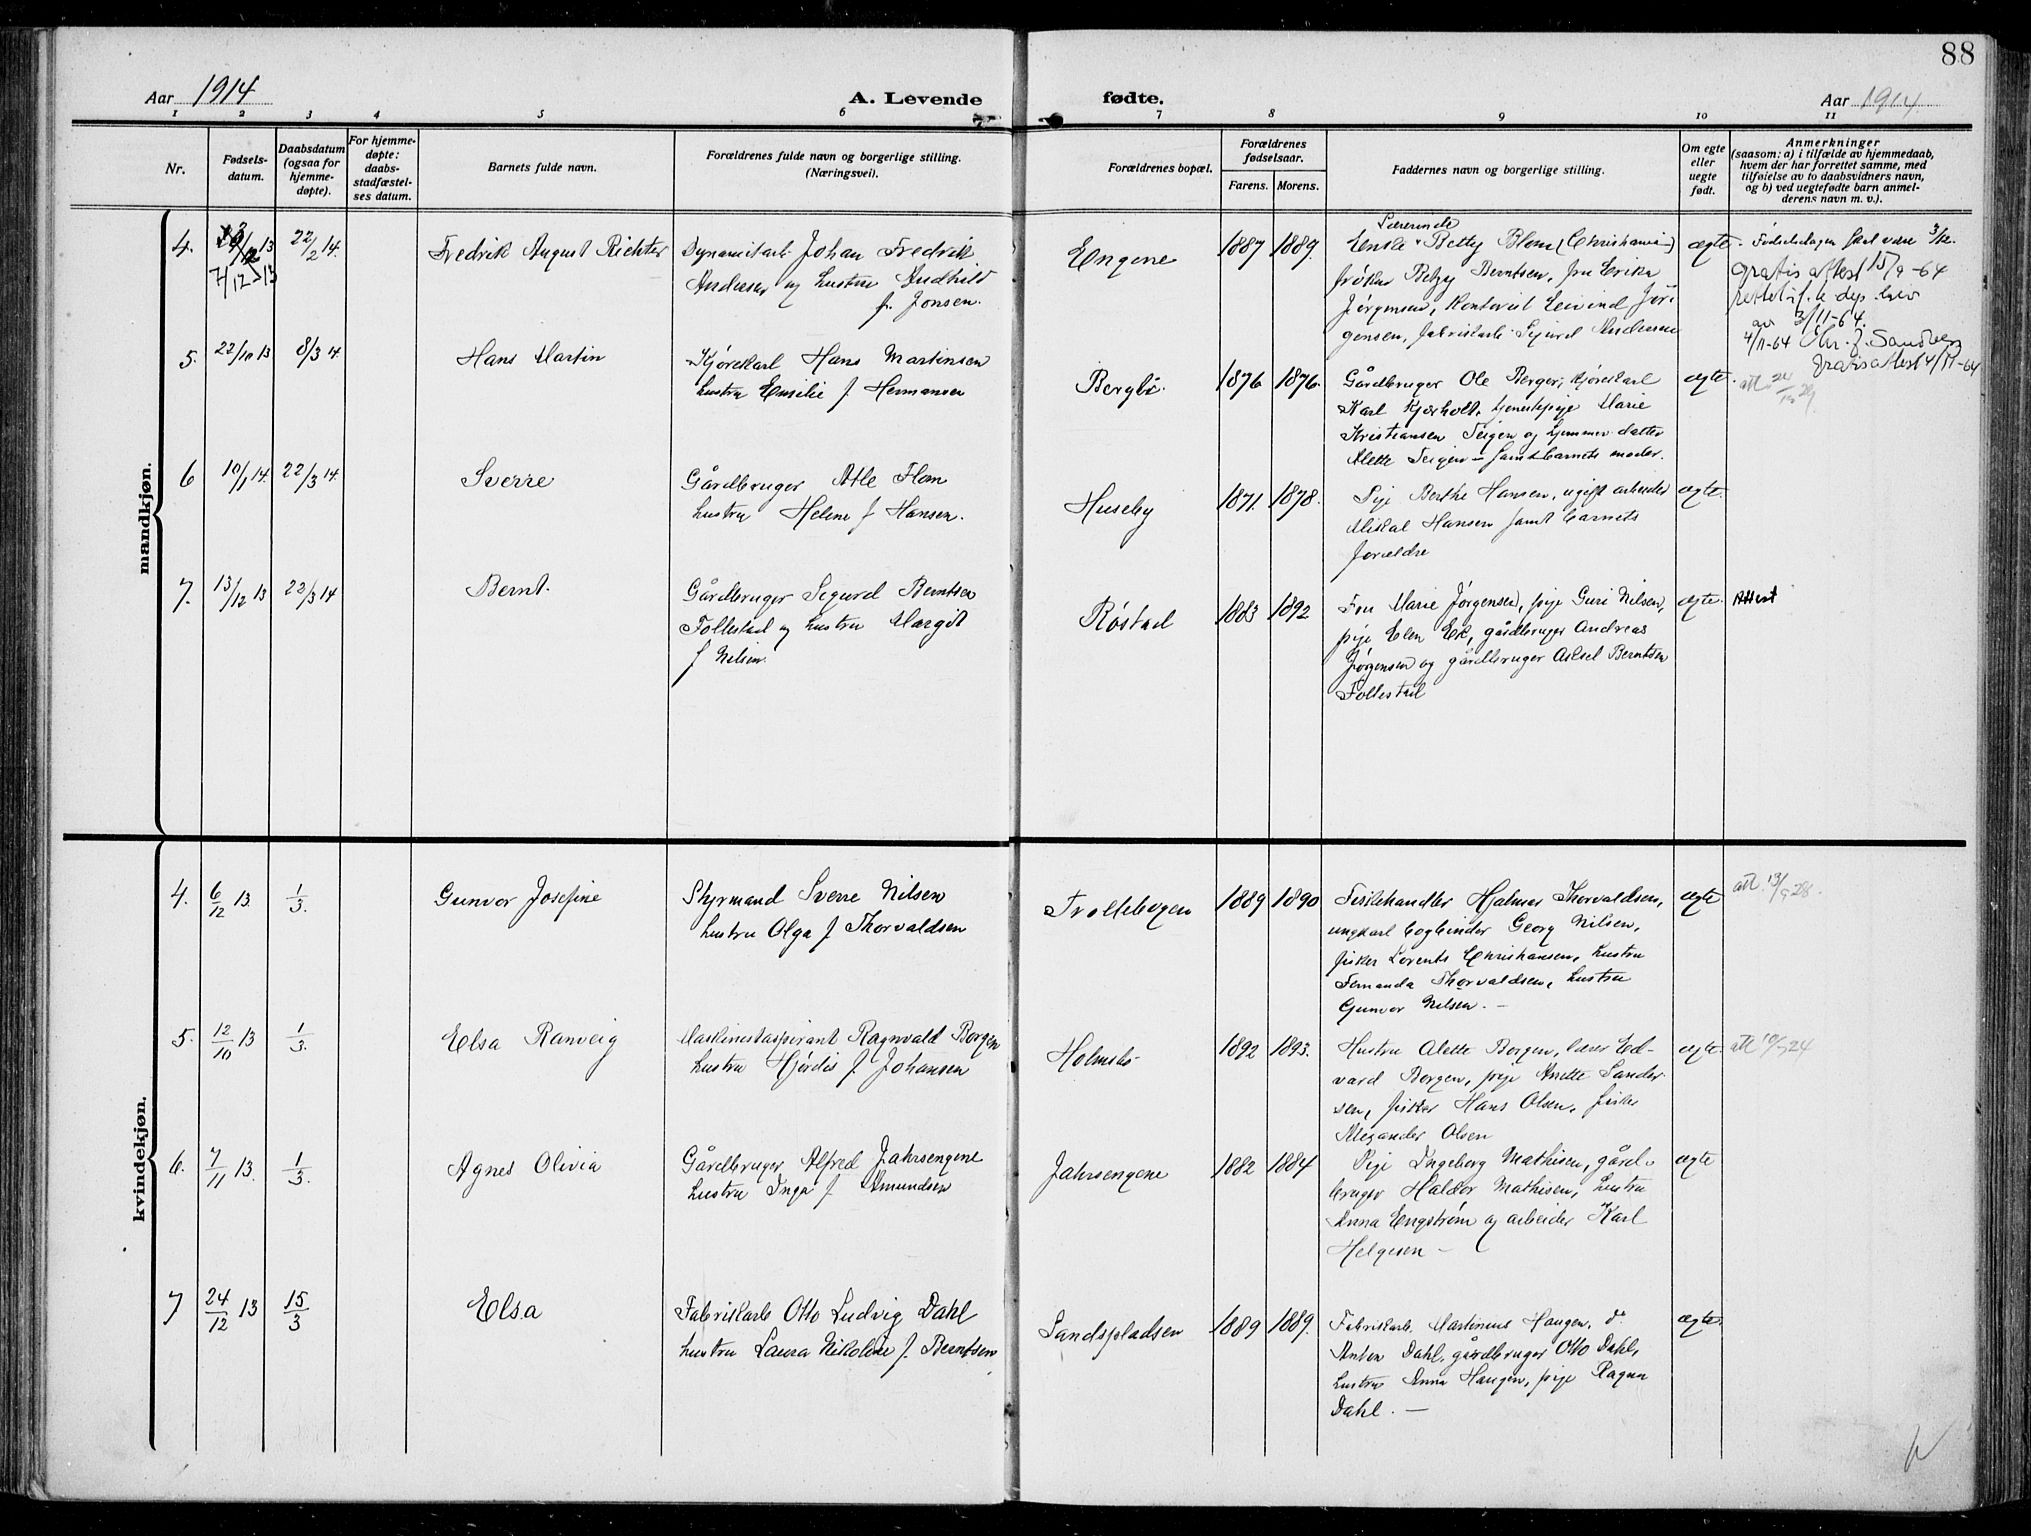 88
Aar 1914
A. Levende fødte.
Aar 1914.
1 2 3 4 5 6 7 7 8 9 10 11
Nr.
Fødsels-
datum.
Daabsdatum
(ogsaa for
hjemme-
døpte).
For hjemme-
døpte:
daabs-
stadfæstel-
ses datum.
Barnets fulde navn.
Forældrenes fulde navn og borgerlige stilling.
(Næringsvei).
Forældrenes bopæl.
Forældrenes
fødselsaar.
Farens. Morens.
Faddernes navn og borgerlige stilling.
Om egte
eller
uegte
født.
Anmerkninger
(saasom: a) i tilfælde av hjemmedaab,
hvem der har forrettet samme, med
tilføielse av to daabsvidners navn,
og b) ved uegtefødte barn anmel-
derens navn m. v.).
mandkjøn.
4.
7/12-13
22/2 14.
Fredrik August Richter
Dynamitarb. Johan Fredrik
Andersen og hustru
f. Jonsen.
Engene
1887 1889.
Lærerinde
Enke Betty Blom (Christiania)
frøken Betzy Berntsen, fru Erika
Jørgensen, Kontorist Eivind Jør-
gensen, fabrikarb. Sigurd Andersen
ægte.
Fødselsdagen skal være 7/12.
gratis attest 15/9-64
rettet if. dep. brev
av 3/11-64.
4/11-64 Chr. f. Sandberg
gratis attest 4/11-64
5. 22/10 13 8/3 14.
Hans Martin
Kjørekarl Hans Martinsen
hustru Emilie f. Hermansen
Bergbö.
1876 1876.
Gårdbruger Ole Berger, kjørekarl
Karl Kjærholt, tjenestepige Marie
Kristiansen Teigen og hjemmev. datter
Alette Teigen – samt barnets moder.
ægte.
6 10/1 14. 22/3 14.
Sverre
Gårdbruger Atle Flom
hustru Helene f Hansen.
Huseby
1871. 1878.
Pige Berthe Hansen, ugift arbeider
Mikal Hansen samt barnets
forældre
ægte.
7. 13/12 13 22/3 14
Bernt.
Gårdbruger Sigurd Berntsen
Follestad og hustru Margit
f Nilsen.
Røstad
1883 1892
Fru Marie Jørgensen, pige Guri Nilsen,
pige Elen Ek, gårdbruger Andreas
Jørgensen og gårdbruger Aksel Berntsen
Follestad
ægte.
Attest
kvindekjøn.
4. 6/12 13. 1/3.
Gunvor Josefine
Styrmand Sverre Nilsen
hustru Olga f Thorvaldsen
Trollebogen
1889 1890
Fiskehandler Hjalmar Thorvaldsen,
ungkarl bogbinder Georg Nilsen,
fisker Lorents Christiansen, hustru
Fernanda Thorvaldsen, hustru
Gunvor Nilsen. –
ægte
att. 13/9 28.
5. 12/10 13 1/3.
Elsa Ranveig
Maskinistaspirant Ragnvald Borgen
hustru Hjørdis f Johansen
Holmsbo
1892 1893.
Hustru Alette Borgen, lærer Ed-
vard Borgen, pige Anette Sander-
sen, fisker Hans Olsen, fisker
Alexander Olsen
ægte.
6. 7/11 13. 1/3.
Agnes Olivia
Gårdbruger Alfred Jahrsengene
hustru Inga f. Amundsen
Jahrsengene
1882 1884
Pige Ingeborg Mathisen, gård-
bruger Haldor Mathisen, hustru
Anna Engstrøm og arbeider Karl
Helgesen –
ægte
7 24/12 13 15/3
Elsa
Fabrikarb Otto Ludvig Dahl
hustru Laura Nikoline f. Berntsen
Sandspladsen
1889 1889.
Fabrikarb. Martinius Haugen, d°
Anton Dahl, gårdbruger Otto Dahl,
hustru Anna Haugen, pige Ragna
Dahl. –
ægte.